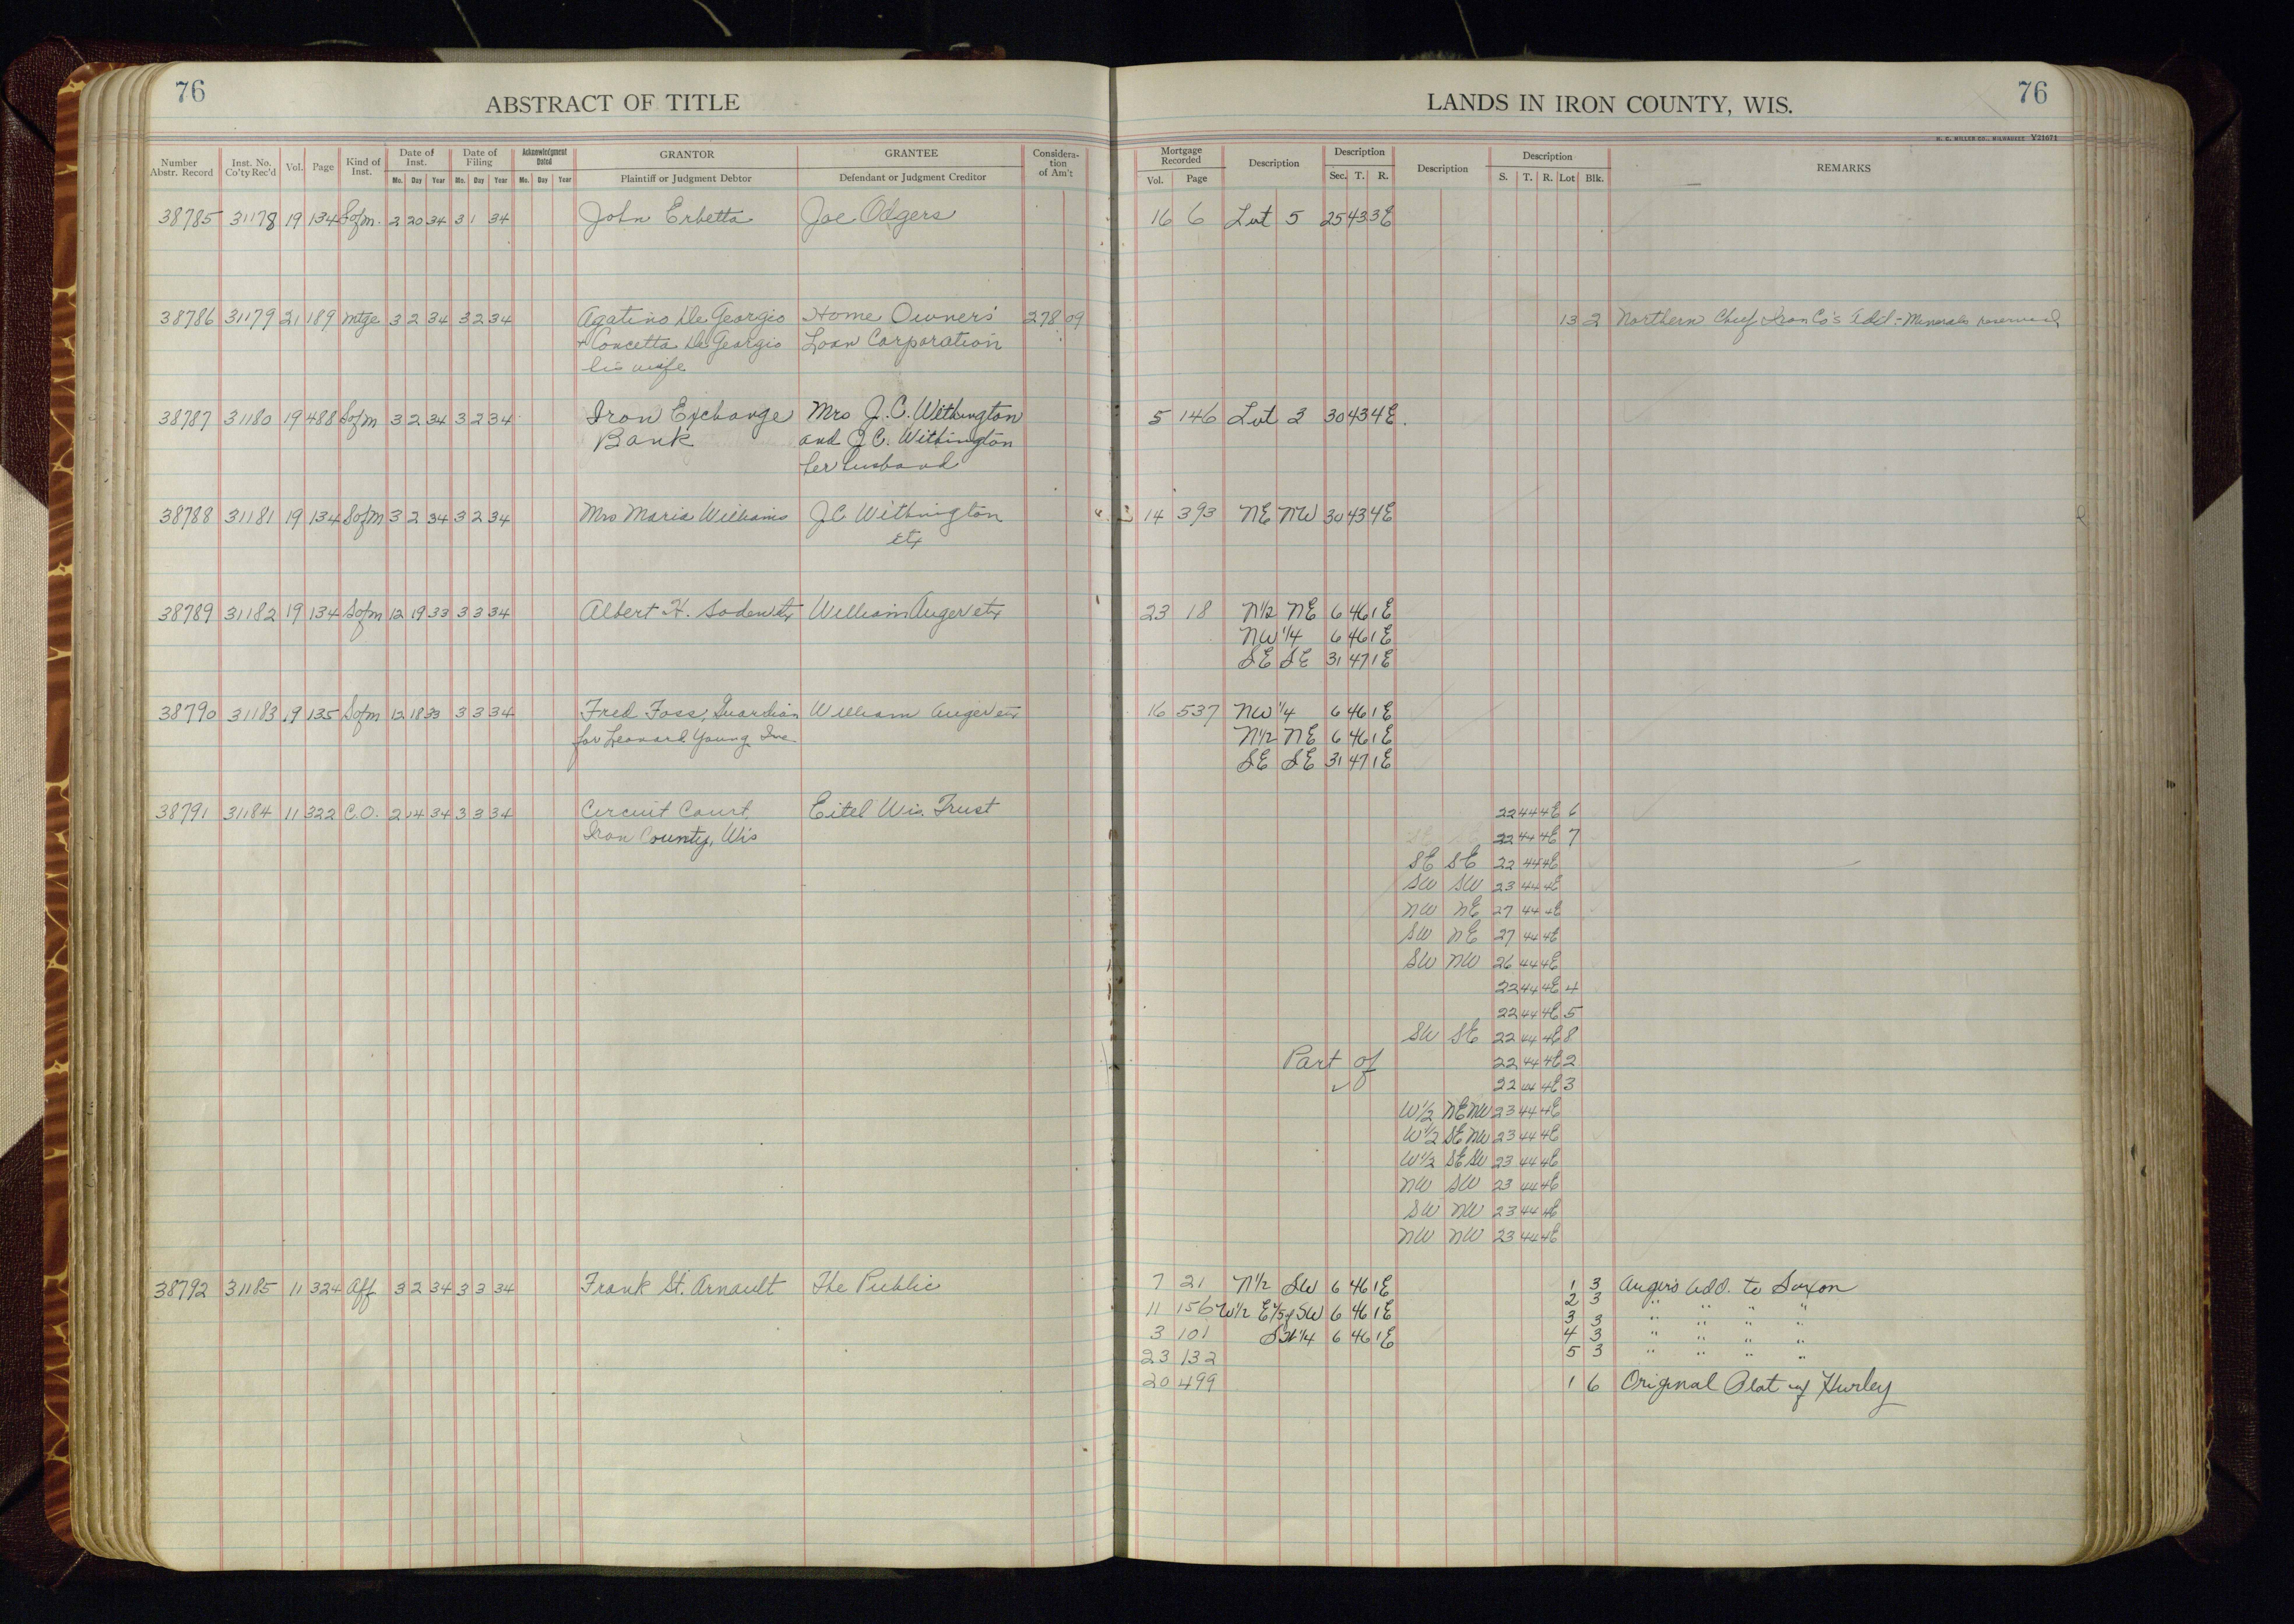 76
ABSTRACT OF TITLE
LANDS IN IRON COUNTY, WIS.
76
H. C. MILLER CO., MILWAUKEE Y21671
Number Abstr. Record Inst. No. Co'ty Rec'd Vol. Page Kind of Inst. Date of Inst. Mo. Day Year Date of Filing Mo. Day Year Acknowledgment Dated Mo. Day Year GRANTOR Plaintiff or Judgment Debtor GRANTEE Defendant or Judgment Creditor Considera- tion of Am't Mortgage Recorded Vol. Page Description Description Sec. T. R. Description Description S. T. R. Lot Blk. REMARKS
38785 31178 19 134 Sofm. 2 20 34 3 1 34 John Erbetta Joe Odgers 16 6 Lot 5 25 43 3E
38786 31179 21 189 mtge 3 2 34 3 2 34 Agatino De Georgio Home Owners' 278 09 13 2 Northern Chief Iron Co's Add.- Minerals reserved
+ Concetta De Georgio Loan Corporation
his wife
38787 31180 19 488 Sofm 3 2 34 3 2 34 Iron Exchange Mrs J.C. Withington 5 146 Lot 3 30 43 4E.
Bank and J.C. Withington
her husband
38788 31181 19 134 Sofm 3 2 34 3 2 34 Mrs Maria Williams J C Withington 14 393 NE NW 30 43 4E
etx
38789 31182 19 134 Sofm 12 19 33 3 3 34 Albert H. Soden etx William Auger etx 23 18 N1/2 NE 6 46 1E
NW 1/4 6 46 1E
SE SE 31 47 1E
38790 31183 19 135 Sofm 12 18 33 3 3 34 Fred Foss, Guardian William Auger etx 16 537 NW 1/4 6 46 1E
for Leonard Young Inc N1/2 NE 6 46 1E
SE SE 31 47 1E
38791 31184 11 322 C.O. 2 14 34 3 3 34 Circuit Court, Eitel Wis. Trust 22 44 4E 6
Iron County, Wis 22 44 4E 7
SE SE 22 44 4E
SW SW 23 44 4E
NW NE 27 44 4E
SW NE 27 44 4E
SW NW 26 44 4E
22 44 4E 4
22 44 4E 5
SW SE 22 44 4E 8
Part of 22 44 4E 2
22 44 4E 3
W1/2 NE NW 23 44 4E
W1/2 SE NW 23 44 4E
W1/2 SE SW 23 44 4E
NW SW 23 44 4E
SW NW 23 44 4E
NW NW 23 44 4E
38792 31185 11 324 Aff 3 2 34 3 3 34 Frank St. Arnault The Public 7 21 N1/2 SW 6 46 1E 1 3 Auger's Add. to Saxon
2 3 " " " "
11 156 W1/2 E 4/5 of SW 6 46 1E 3 3 " " " "
3 101 SW 1/4 6 46 1E 4 3 " " " "
23 132 5 3 " " " "
20 499 1 6 Original Plat of Hurley